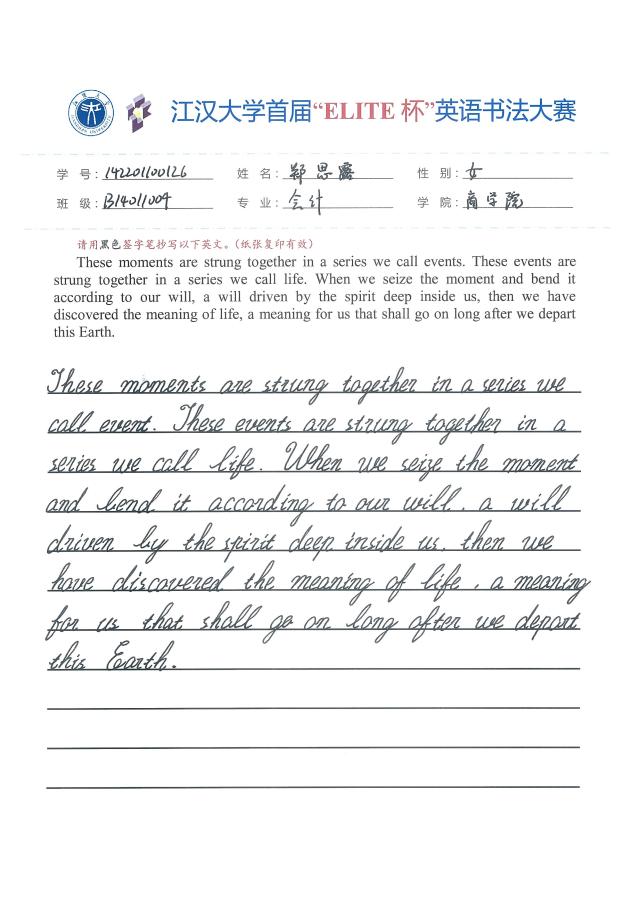 江汉大学首届“ELITE 杯”英语书法大赛
学 号：142201100126 姓 名：郑思露 性 别：女
班 级：B14011009 专 业：会计 学 院：商学院
请用黑色签字笔抄写以下英文。(纸张复印有效)
These moments are strung together in a series we call events. These events are
strung together in a series we call life. When we seize the moment and bend it
according to our will, a will driven by the spirit deep inside us, then we have
discovered the meaning of life, a meaning for us that shall go on long after we depart
this Earth.
These moments are strung together in a series we
call event. These events are strung together in a
series we call life. When we seize the moment
and bend it according to our will. a will
driven by the spirit deep inside us. then we
have discovered the meaning of life. a meaning
for us that shall go on long after we depart
this Earth.